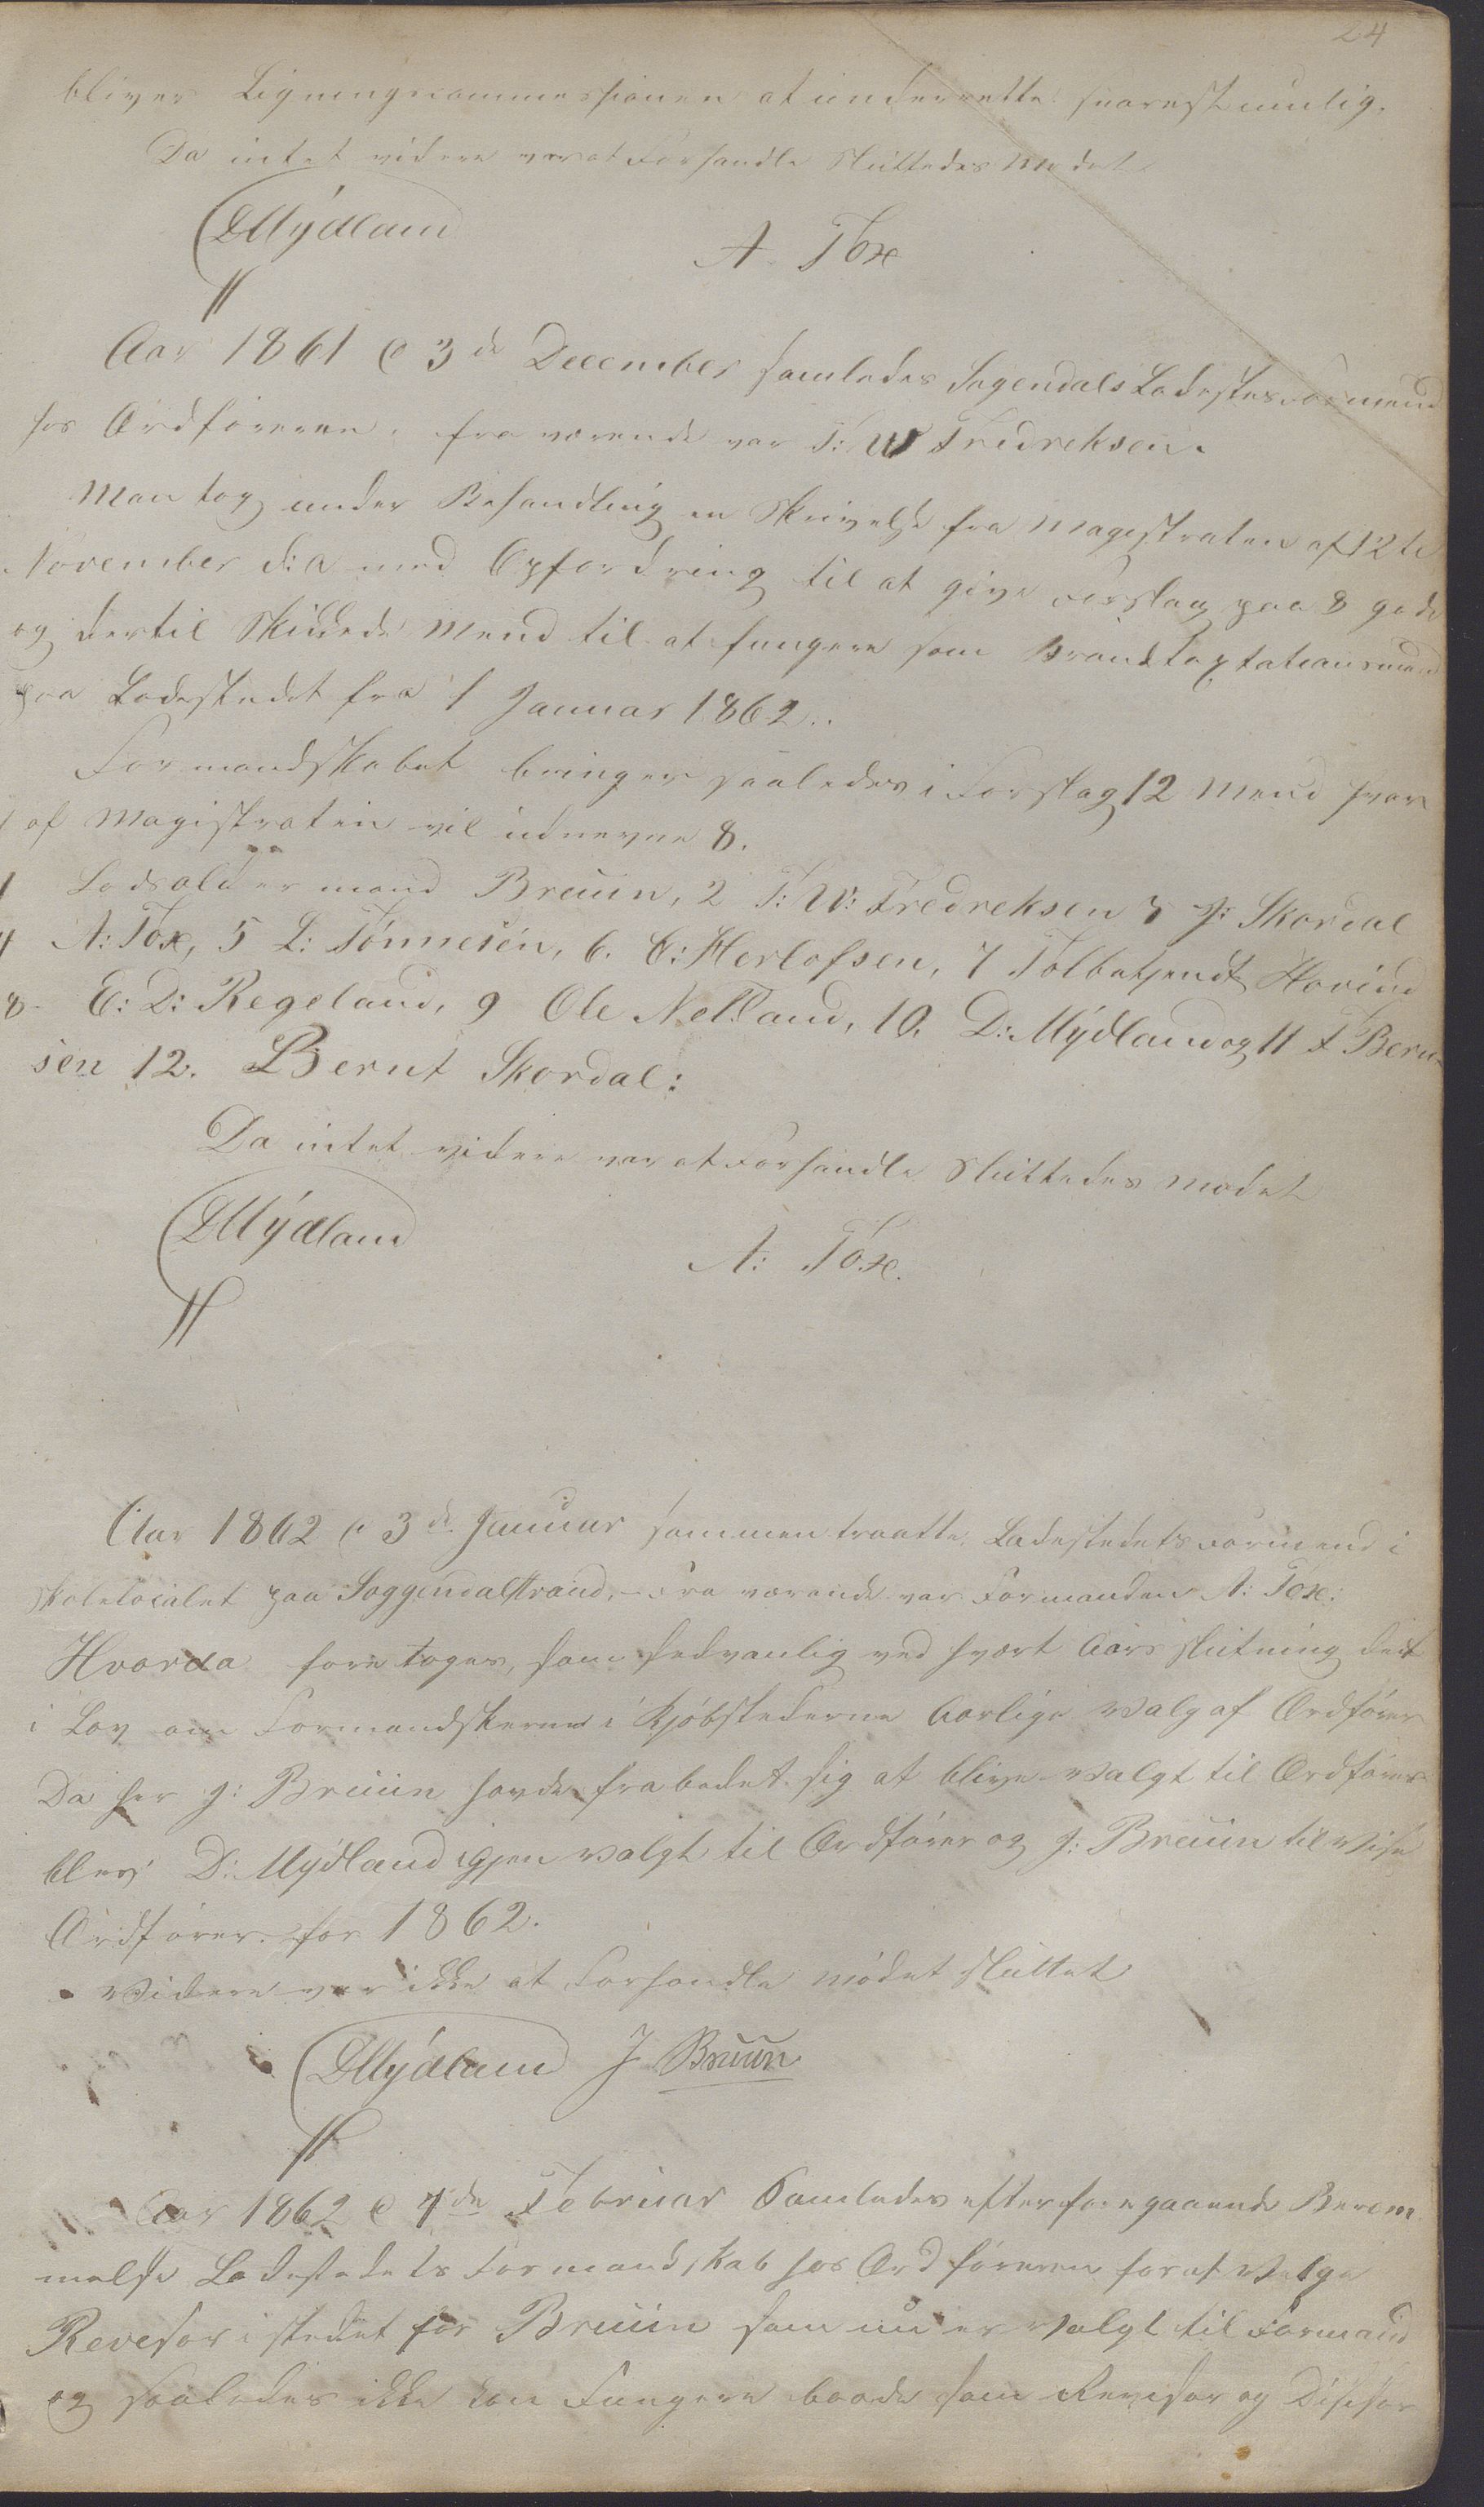 24
bliver Ligningscommessionen at underrette snarest mulig.
Da intet videre var at Forhandle sluttedes mødet
DMydland
A Tox
Aar 1861 d 3de December samledes Sogendals Ladesteds Formend
hos Ordføreren, fraværende var T: W Fredreksen.
Man tog under Behandling en Skrivelse fra Magistraten af 12te
November d: A med Opfordring til at give Forslag paa 8 gode
og dertil skikkede Mend til at fungere som Brandtaxtationsmend
paa Ladestedet fra 1 Januar 1862..
Formandskabet bringer saaledes i Forslag 12 Mend hvor
af Magistraten vil udnevne 8.
1 Lodsoldermand Bruun, 2 T: W: Fredreksen 3 J: Skordal
4 A: Tox, 5 L: Tønnesen, 6. C: Herlofsen, 7 Tolbetjendt Hovind
8. E: D: Regeland, 9 Ole Netland, 10. D: Mydland og 11 T Bern-
sen 12. Bernt Skordal:
Da intet videre var at Forhandle sluttedes mødet
DMydland
A: Tox.
Aar 1862 d 3de Januar sammentraatte Ladestedets Formend i
skolelocalet paa Soggendalstrand, – Fraværende var Formanden A: Tox:
Hvorda foretoges, som sedvanlig ved hvert Aars slutning det
i Lov om Formandskerne i Kjøbstederne Aarlige Valg af Ordfører
Da her J: Bruun havde frabedet sig at blive Valgt til Ordfører
blev D: Mydland igjen Valgt til Ordfører og J: Bruun til Vise
Ordfører for 1862.
Videre var ikke at Forhandle mødet sluttet
DMydland J Bruun
Aar 1862 d 4de Februar Samledes efter foregaaende Berem
melse Ladestedets Formandskab hos Ordføreren for at Velge
Revesor i stedet for Bruun som nu er Valgt til Formand
og saaledes ikke kan Fungere baade som Revisor og Disisor